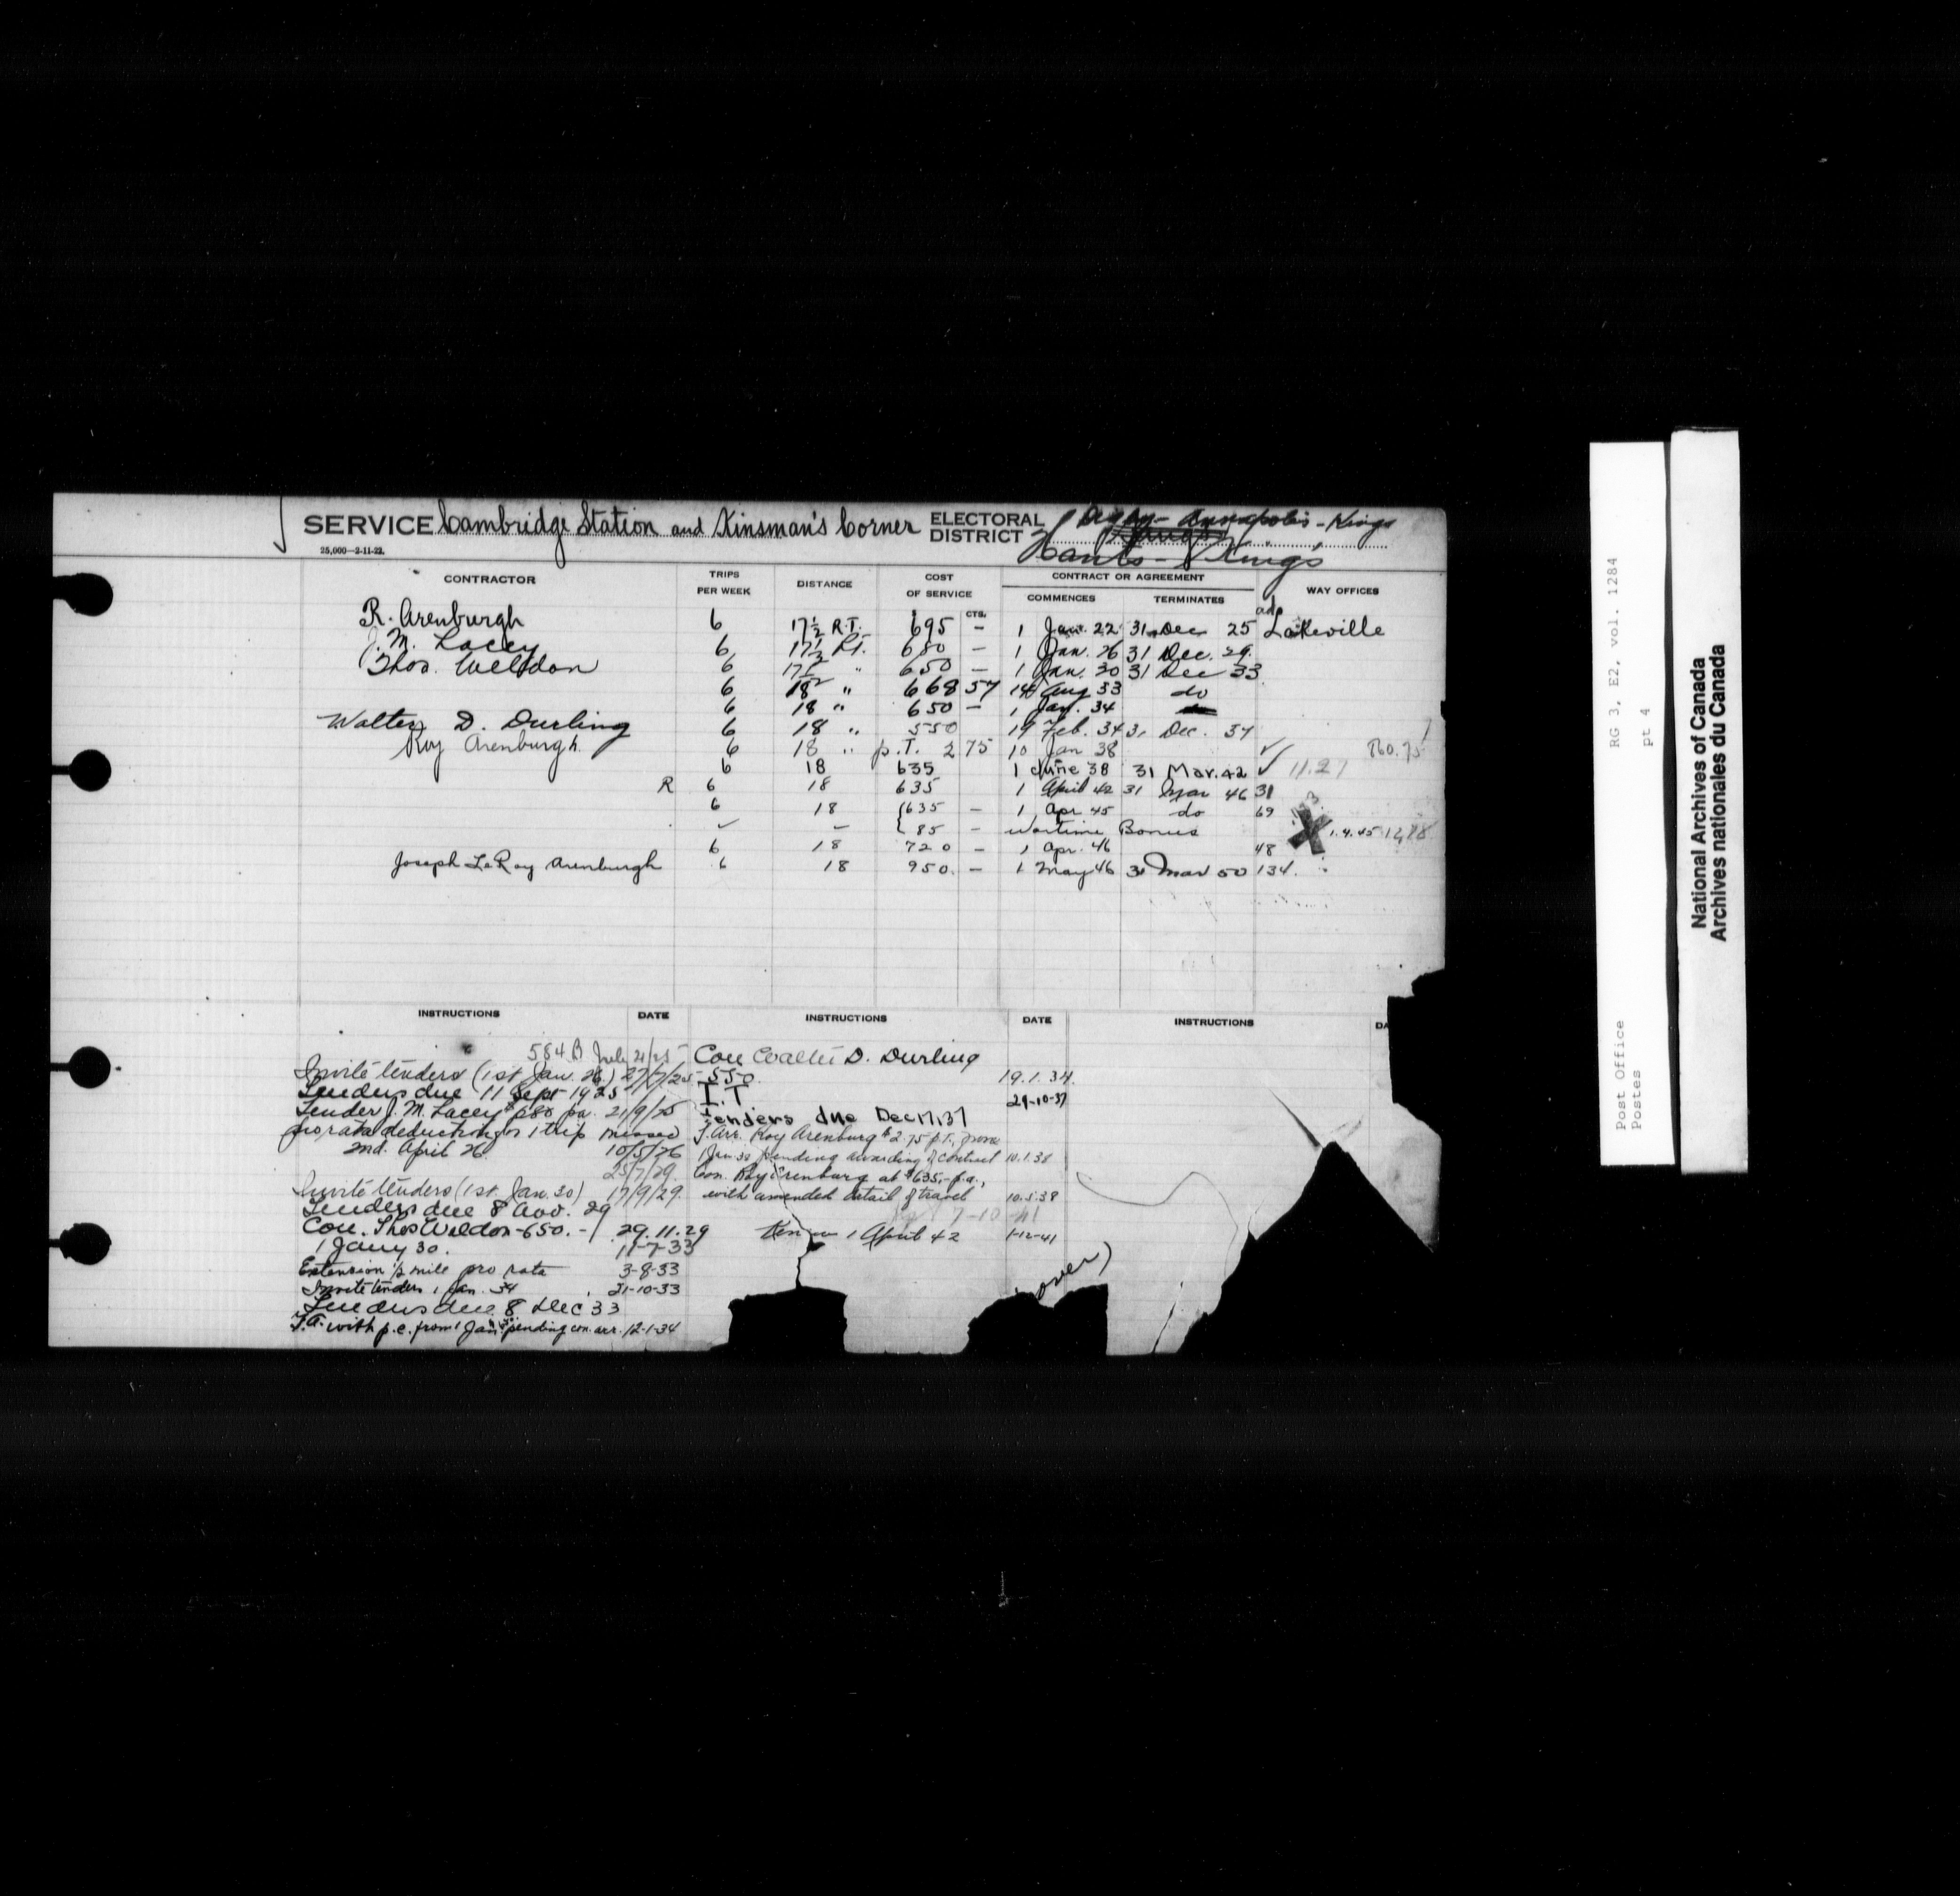 SERVICE Cambridge Station and Kinsman's Corner ELECTORAL DISTRICT Digby - Annapolis - Kings
Hants - Kings
25,000—2-11-22.
CONTRACTOR TRIPS PER WEEK DISTANCE COST OF SERVICE CTS. CONTRACT OR AGREEMENT COMMENCES TERMINATES WAY OFFICES
R. Arenburgh 6 17½ R.T. 695 – 1 Jan. 22 31 Dec 25 Lakeville
J. M. Lacey 6 17½ R.T. 680 – 1 Jan. 26 31 Dec. 29.
Thos. Weldon 6 17½ " 650 – 1 Jan. 30 31 Dec 33
6 18 " 668 57 14 Aug 33 do
6 18 " 650 – 1 Jan. 34
Walter D. Durling 6 18 " 550 19 Feb. 34 31 Dec. 37
Roy Arenburgh 6 18 " p.T. 2 75 10 Jan 38 ✓ 860.75
6 18 635 1 June 38 31 Mar. 42 ✓ 11.27
R 6 18 635 1 April 42 31 Mar 46 31
6 18 {635 – 1 Apr 45 do 69
✓ – {85 – Wartime Bonus X 1.4.45
6 18 720 – 1 Apr. 46 48
Joseph LeRoy Arenburgh 6 18 950. – 1 May 46 31 Mar 50 134.
INSTRUCTIONS DATE INSTRUCTIONS DATE INSTRUCTIONS DA
584 B July 21/25
Invite tenders (1st Jan. 26.) 27/7/25
Tenders due 11 Sept 1925
Tender J. M. Lacey $680 pa. 21/9/25
pro rata deduction for 1 trip missed
2nd. April 26. 10/5/26
25/7/29.
Invite tenders (1st. Jan. 30) 17/9/29.
Tenders due 8 Nov. 29
Con. Thos Weldon - 650. - 29.11.29
1 Jany 30. 11-7-33
Extension ½ mile pro rata 3-8-33
Invite tenders 1 Jan. 34 31-10-33
Tenders due 8 Dec 33
T.A. with p.c. from 1 Jan. pending con. arr. 12-1-34
Con Walter D. Durling
550. 19.1.34.
I.T 29-10-37
Tenders due Dec 17, 37
T. Arr. Roy Arenburg $2.75 p.T., from
1 Jan 38 pending awarding of contract 10.1.38
Con. Roy Arenburg at $635.- p.a.,
with amended detail of travel 10.5.38
7-10-41
Renew 1 April 42 1-12-41
(over)
Post Office RG 3, E2, vol. 1284
Postes pt 4
National Archives of Canada
Archives nationales du Canada